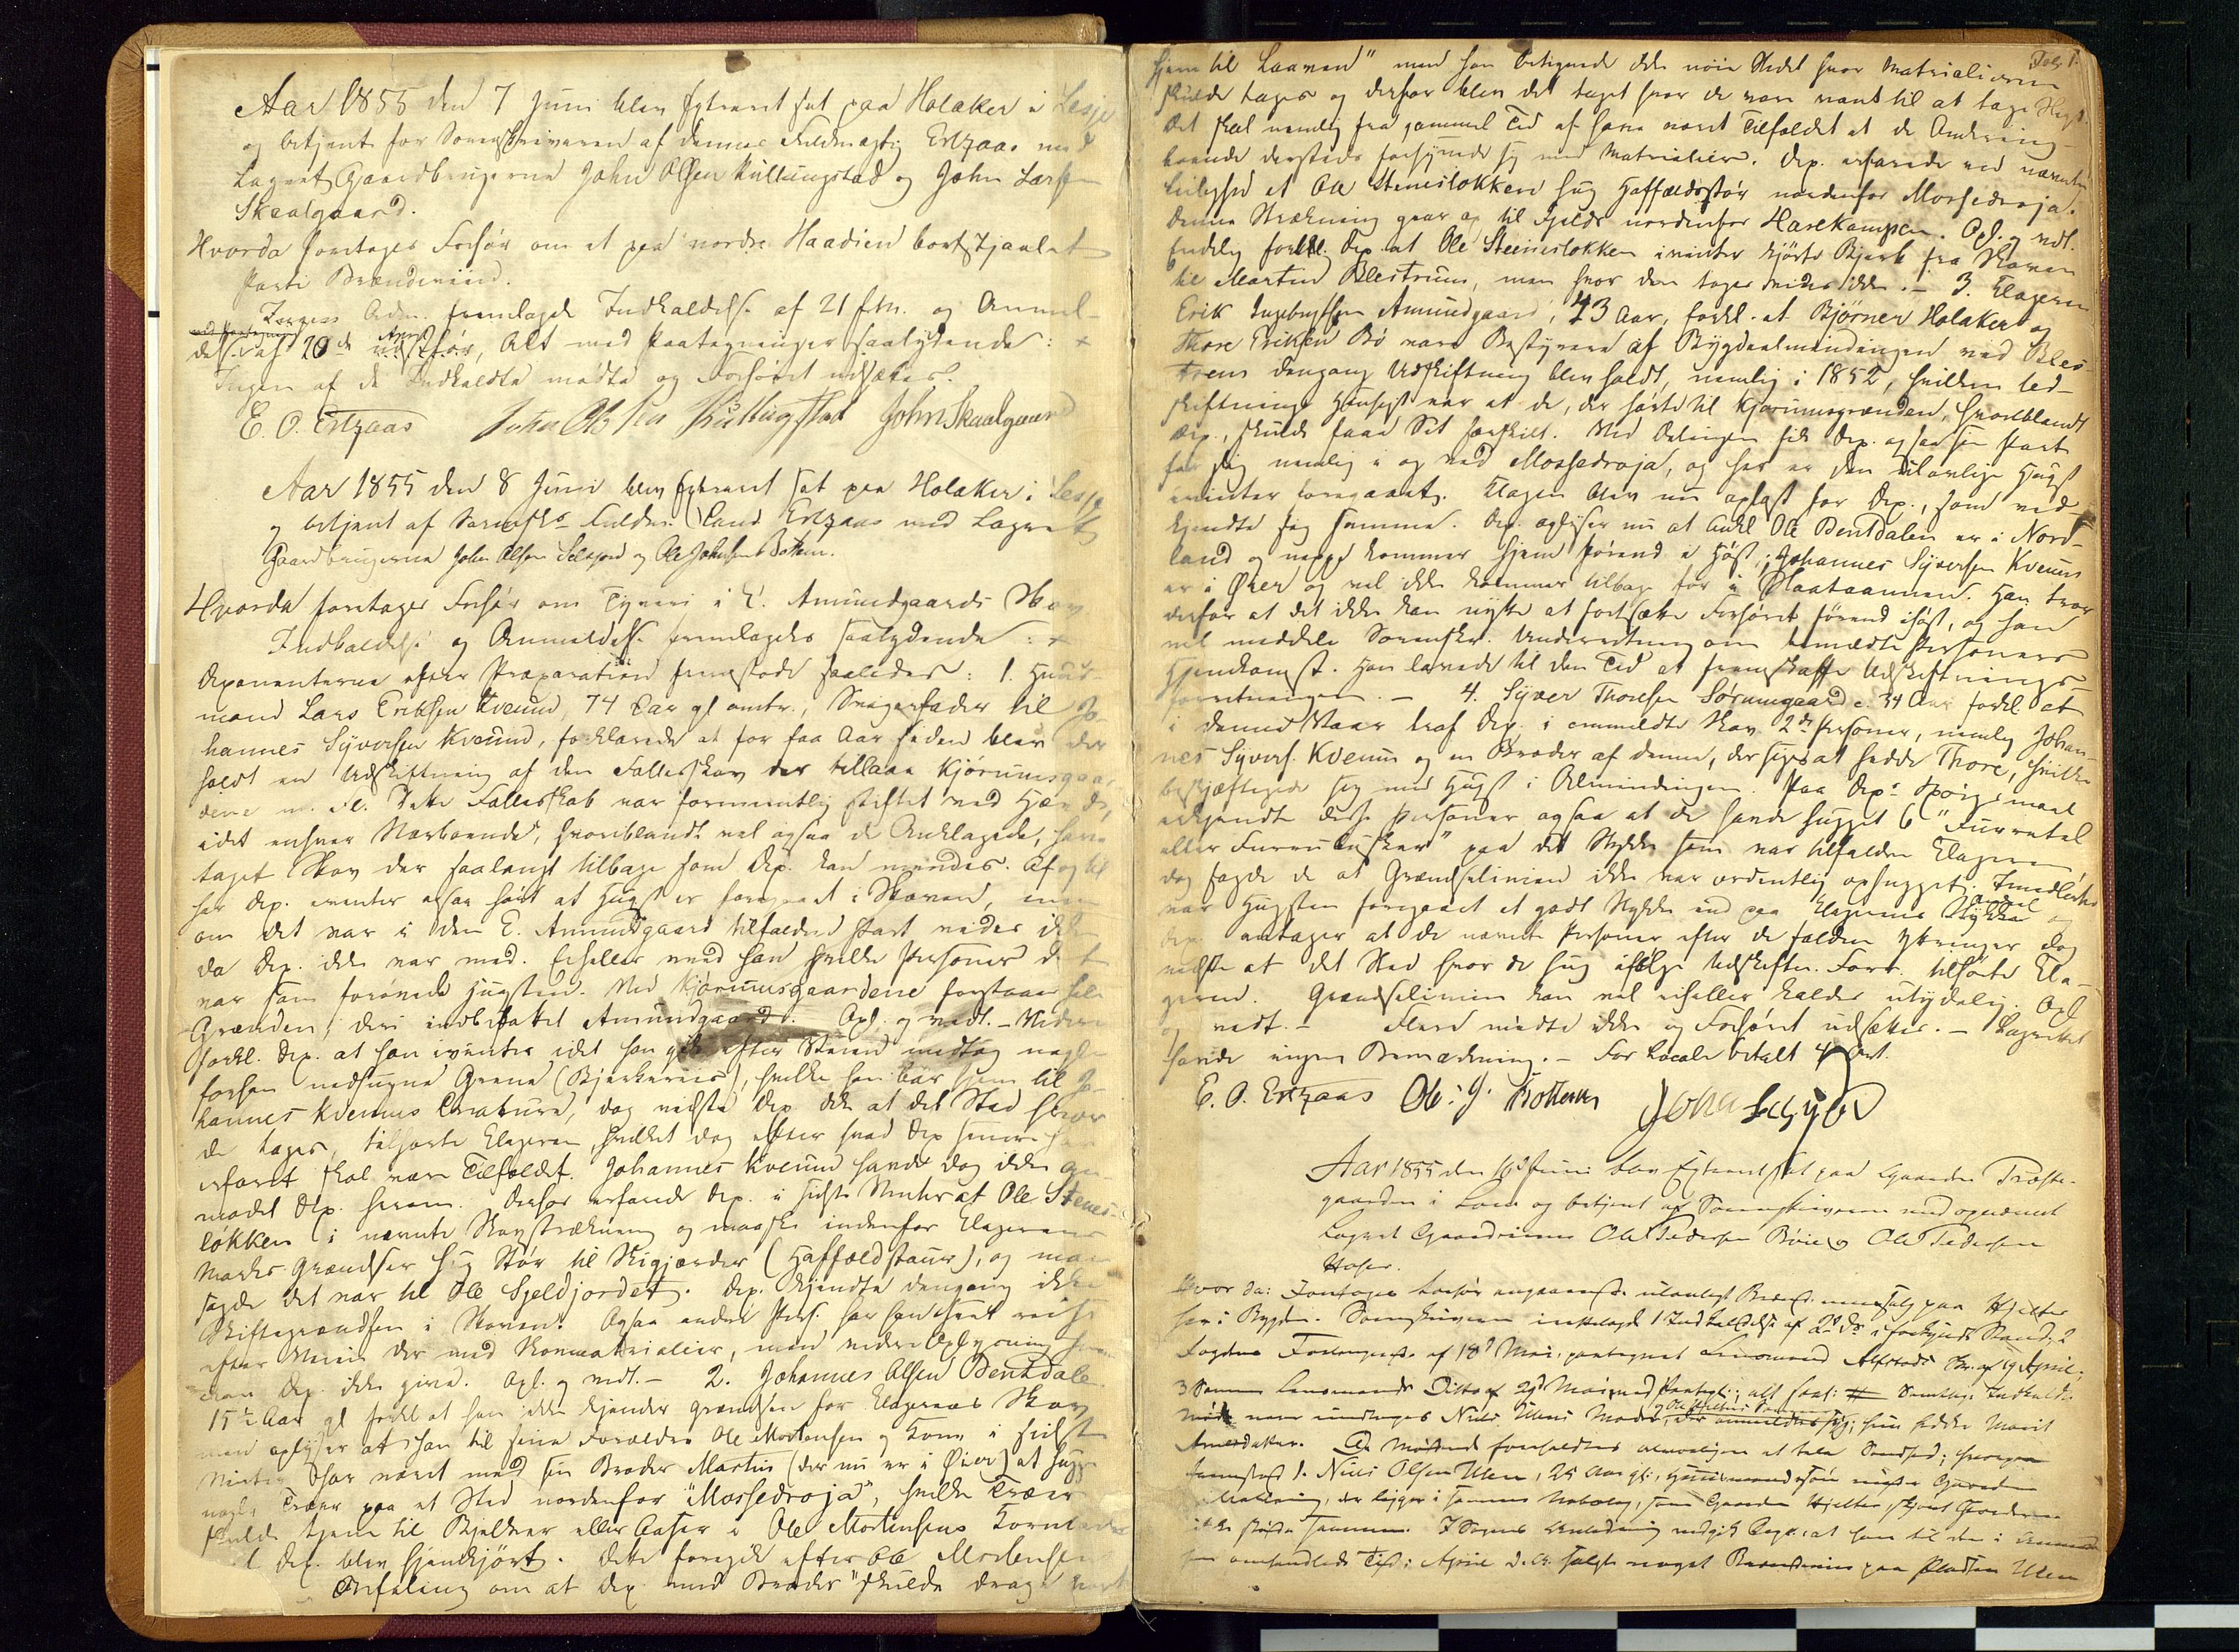 Aar 1855 den 7 Juni blev Extraret sat paa Holaker i Lesje
og betjent for Sorenskriveren af dennes Fuldmægtig Erlzaas med
Lagret Gaardbrugerne John Olsen Kullungstad og John Larsen
Skaalgaard.
Hvorda foretages Forhør om et paa nordre Haadien bortstjaalet
Parti Brændeviin.
fremlagde Indkaldelse af 21 f.M. og Anmel-
delse af 20de April før, Alt med Paategninger saalydende: +
Ingen af de Indkaldte mødte og Forhøret udsættes.
E. O. Erlzaas John Olsen Kullingstad John Skaalgaard
Aar 1855 den 8 Juni blev Extraret sat paa Holaker i Lesje
og betjent af Sorenskr. Fuldm. Cand Erlzaas med Lagret
Gaardbrugerne John Olsen Selsjord og Ole Johnsen Bottem.
Hvorda foretages Forhør om Tyveri i E. Amundgaards Skov
Indkaldelse og Anmeldelse fremlagdes saalydende: +
Deponenterne efter Præparation fremstode saaledes: 1. Huus-
mand Lars Eriksen Kveum, 74 Aar gl omtr., Svigerfader til Jo-
hannes Syversen Kveum, forklarede at for faa Aar siden blev der
holdt en Udskiftning af den Fællesskov der tillaae Kjørumsgaar-
dene m. Fl. Dette Fællesskab var formeentlig stiftet ved Hævd,
idet enhver Nærboende, hvoriblandt vel ogsaa de Anklagede, have
taget Skov der saalangt tilbage som Dep. kan mindes. Af og til
har Dep. ivinter ogsaa hørt at Hugst er foregaaet i Skoven, men
om det var i den E. Amundgaard tilfaldne Part vides ikke
da Dep. ikke var med. Eiheller veed han hvilke Personer det
var som forøvede Hugsten. Ved Kjørumsgaardene forstaaes hele
Grænden, deri indbefattet Amundgaard. Opl. og vedt. - Videre
forkl. Dep. at han ivinter idet han gik efter Steen medtog nogle
forhen nedhugne Grene (Bjerkeriis), hvilke han bar hjem til Jo-
hannes Kveums Creature, dog vidste Dep. ikke at det Sted hvor
de toges, tilhørte Klageren hvilket dog efter hvad Dep senere har
erfaret skal være Tilfældet. Johannes Kveum havde dog ikke an-
modet Dep. herom. Derhos erfarede Dep. i sidste Vinter at Ole Stenes-
løkken i nævnte Skovstrækning og maaske indenfor Klagerens
Marks Grændser hug Stør til Skigjærder (Haffældstaur), og man
sagde det var til Ole Sjeldjordet. Dep. kjendte dengang ikke
Skiftegrændsen i Skoven. Ogsaa andre Pers. har han seet reise
efter Veien der med Skovmaterialier, men videre Oplysning herom
kan Dep. ikke give. Opl. og vedt. - 2. Johannes Olsen Bentdalen
15½ Aar gl forkl at han ikke kjender Grændsen for Klagerens Skov
men oplyser at han til sine Forældre Ole Mortensen og Kone i sidste
Vinter har været med sin Broder Martin (der nu er i Øier) at hugge
nogle Træer paa et Sted nordenfor "Mossedroja", hvilke Træer
skulde tjene til Bjelker eller Aaser i Ole Mortensens Kornlade
Dep. blev hjemkjørt. Dette foregik efter Ole Mortensens
Befaling om at Dep. med Broder "skulde drage
Fol 1.
hjem til Laaven" men han betegnede ikke nøie Stedet hvor Materialierne
skulde tages og derfor blev det taget hvor de vare vant til at tage Hugst.
Det skal nemlig fra gammel Tid af have været Tilfældet at de Omkring-
boende dersteds forsynede sig med Materialier. Dep. erfarede ved nævnte
Leilighed at Ole Stenesløkken hug Haffældstør nordenfor Mossedroja.
Denne Strækning gaar op til Fjelds nordenfor Harekampen. Opl. og vdt.
Endelig forkl. Dep. at Ole Steenesløkken ivinter kjørte Bjerk fra Skoven
til Morten Blestrum, men hvor den toges vides ikke. - 3. Klageren
Erik Ingebrigtsen Amundgaard, 43 Aar, forkl. at Bjørner Holaker og
Thore Eriksen Bø vare Bestyrere af Bygdealmindingen ved Bles-
trum dengang Udskiftning blev holdt, nemlig i 1852, hvilken Ud-
skiftnings Hensigt var at de, der hørte til Kjørumsgrænden, hvoriblandt
Dep., skulde faae Sit særskilt. Ved Delingen fik Dep. ogsaa sin Part
for sig nemlig i og ved Mossedroja, og her er den ulovlige Hugst
ivinter foregaaet. Klagen blev nu oplæst for Dep., som ved-
kjendte sig samme. Dep. oplyser nu at Ankl Ole Bentdalen er i Nord-
land og neppe kommer hjem førend i Høst; Johannes Syversen Kveum
er i Øier og vel ikke kommer tilbage før i Slaataannen. Han troer
derfor at det ikke kan nytte at fortsætte Forhøret førend ihøst, og han
vil meddele Sorenskr. Underretning om bemeldte Personers
Hjemkomst. Han lovede til den Tid at fremskaffe Udskiftnings-
forretningen. - 4. Syver Thoresen Sørumgaard c. 34 Aar forkl. at
i denne Vaar traf Dep. i ommeldte Skov 2de Personer, nemlig Johan-
nes Syvers. Kveum og en Broder af denne, der siges at hedde Thore, hvilke
beskjæftigede sig med Hugst i Almindingen. Paa Dep.s Spørgsmaal
erkjendte disse Personer ogsaa at de havde hugget 6 "Furrutal
eller Furrubusker" paa det Stykke som var tilfalden Klageren
dog sagde de at Grændselinien ikke var ordentlig ophugget. Imidlertid
var Hugsten foregaaet et godt Stykke ind paa Klagerens Stykke og
Dep. antager at de nævnte Personer efter de faldne Ytringer dog
vidste at det Sted hvor de hug ifølge Udskiftn. Forr. tilhørte Kla-
geren. Grændselinien kan vel eiheller kaldes utydelig. Opl
og vedt. - Flere mødte ikke og Forhøret udsættes. - Lagrettet
havde ingen Bemærkning. - For Locale betalt 4 Ort.
E. O. Erlzaas Ole J. Bottem John
Aar 1855 den 16d Juni blev Extraret sat paa Gaarden Præste-
gaarden i Lom og betjent af Sorenskriveren med opnævnt
Lagret Gaardmænd Ole Pedersen Bøie og Ole Pedersen
Hoser.
Hvor da: Foretoges Forhør angaaende ulovligt Brændeviinssalg paa Hjeltar
her i Bygden. Sorenskriveren fremlagde 1 Indkaldelse af 2d ds i forkyndt Stand; 2
Fogdens Forlangende af 18d Mai, paategnet Lensmand Alfstads Skr. af 19 April;
3 Samme Lensmands Ditto af 2d Mai med Paategn.; alt saal: # Samtlige Indkaldte
mødte uden undtagen Niels Ulens Moder, hun hedder Marit
Amundsdatter. De Mødende foreholdtes alvorligen at tale Sandhed; hvorpaa
fremstod 1. Niels Olsen Ulen, 25 Aar gl., Huusmandssøn under Gaarden
der ligger i samme Nabolag, som Gaarden Hjeltar, skjønt Gaardene
ikke støde sammen. I Sagens Anledning vedgik Dep., at han til den i Anmeldelsen
omhandlede Tid: April d. A. solgte noget Brændeviin paa Pladsen Ulen